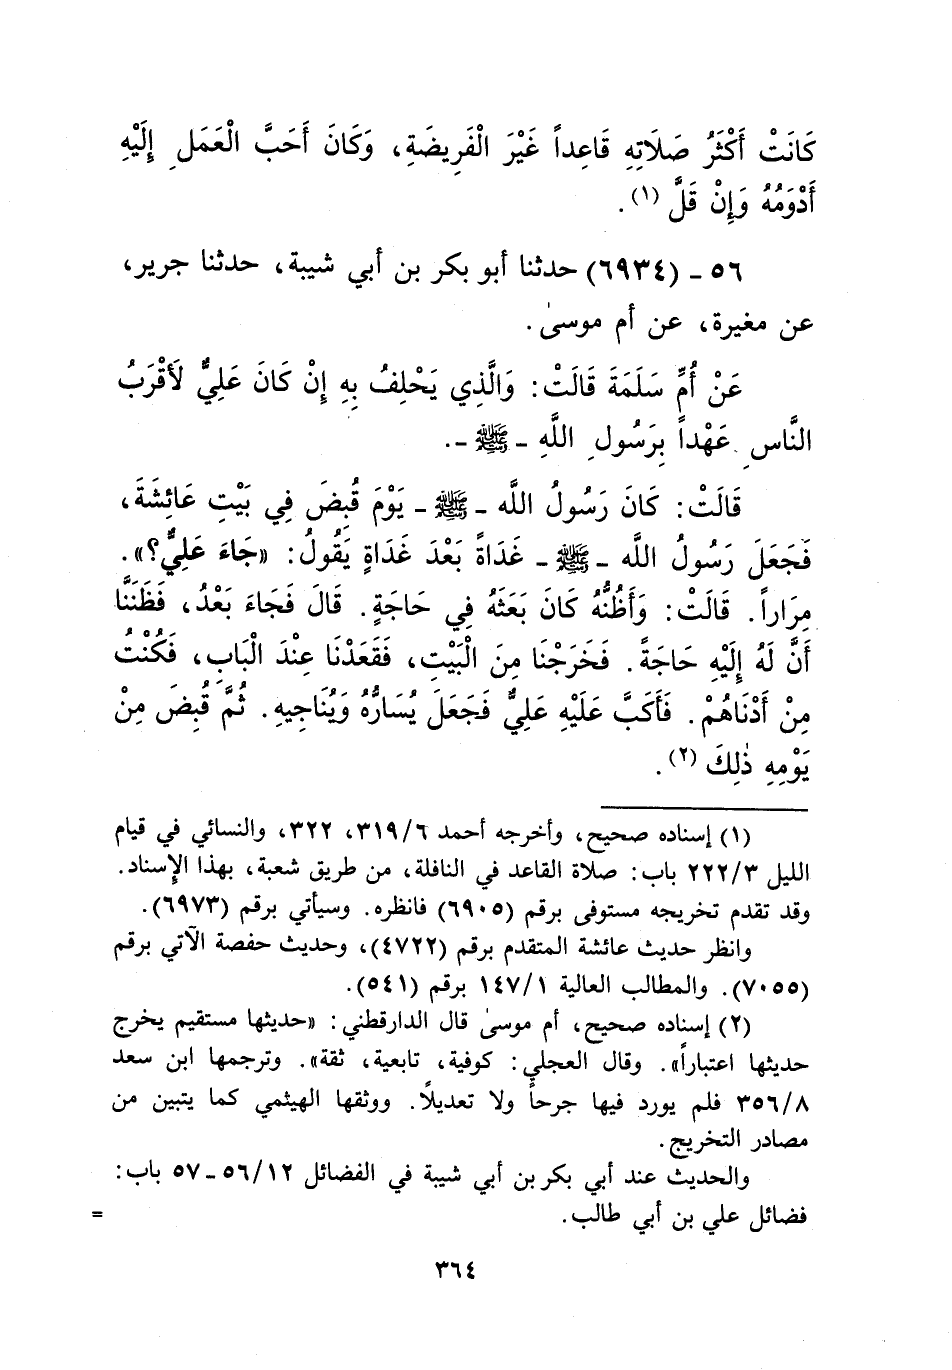 كَانَتْ أَكْثَرُ صَلَاتِهِ قَاعِداً غَيْرَ الْفَرِيضَةِ، وَكَانَ أَحَبَّ الْعَمَلِ إِلَيْهِ
أَدْوَمُهُ وَإِنْ قَلَّ (١).
٥٦ - (٦٩٣٤) حدثنا أبو بكر بن أبي شيبة، حدثنا جرير،
عن مغيرة، عن أم موسىٰ.
عَنْ أُمِّ سَلَمَةَ قَالَتْ: وَالَّذِي يَحْلِفُ بِهِ إِنْ كَانَ عَلِيٌّ لَأَقْرَبُ
النَّاسِ عَهْداً بِرَسُولِ اللَّهِ - ﷺ -.
قَالَتْ: كَانَ رَسُولُ اللَّه - ﷺ - يَوْمَ قُبِضَ فِي بَيْتِ عَائِشَةَ،
فَجَعَلَ رَسُولُ اللَّه - ﷺ - غَدَاةً بَعْدَ غَدَاةٍ يَقُولُ: «جَاءَ عَلِيٌّ؟».
مِرَاراً. قَالَتْ: وَأَظُنُّهُ كَانَ بَعَثَهُ فِي حَاجَةٍ. قَالَ فَجَاءَ بَعْدُ، فَظَنَنَّا
أَنَّ لَهُ إِلَيْهِ حَاجَةً. فَخَرَجْنَا مِنَ الْبَيْتِ، فَقَعَدْنَا عِنْدَ الْبَابِ، فَكُنْتُ
مِنْ أَدْنَاهُمْ. فَأَكَبَّ عَلَيْهِ عَلِيٌّ فَجَعَلَ يُسَارُّهُ وَيُنَاجِيهِ. ثُمَّ قُبِضَ مِنْ
يَوْمِهِ ذٰلِكَ (٢).
(١) إسناده صحيح، وأخرجه أحمد ٣١٩/٦، ٣٢٢، والنسائي في قيام
الليل ٢٢٢/٣ باب: صلاة القاعد في النافلة، من طريق شعبة، بهذا الإسناد.
وقد تقدم تخريجه مستوفى برقم (٦٩٠٥) فانظره. وسيأتي برقم (٦٩٧٣).
وانظر حديث عائشة المتقدم برقم (٤٧٢٢)، وحديث حفصة الآتي برقم
(٧٠٥٥). والمطالب العالية ١٤٧/١ برقم (٥٤١).
(٢) إسناده صحيح، أم موسىٰ قال الدارقطني: «حديثها مستقيم يخرج
حديثها اعتباراً». وقال العجلي: كوفية، تابعية، ثقة». وترجمها ابن سعد
٣٥٦/٨ فلم يورد فيها جرحاً ولا تعديلاً. ووثقها الهيثمي كما يتبين من
مصادر التخريج.
والحديث عند أبي بكر بن أبي شيبة في الفضائل ٥٦/١٢ - ٥٧ باب:
فضائل علي بن أبي طالب. =
٣٦٤